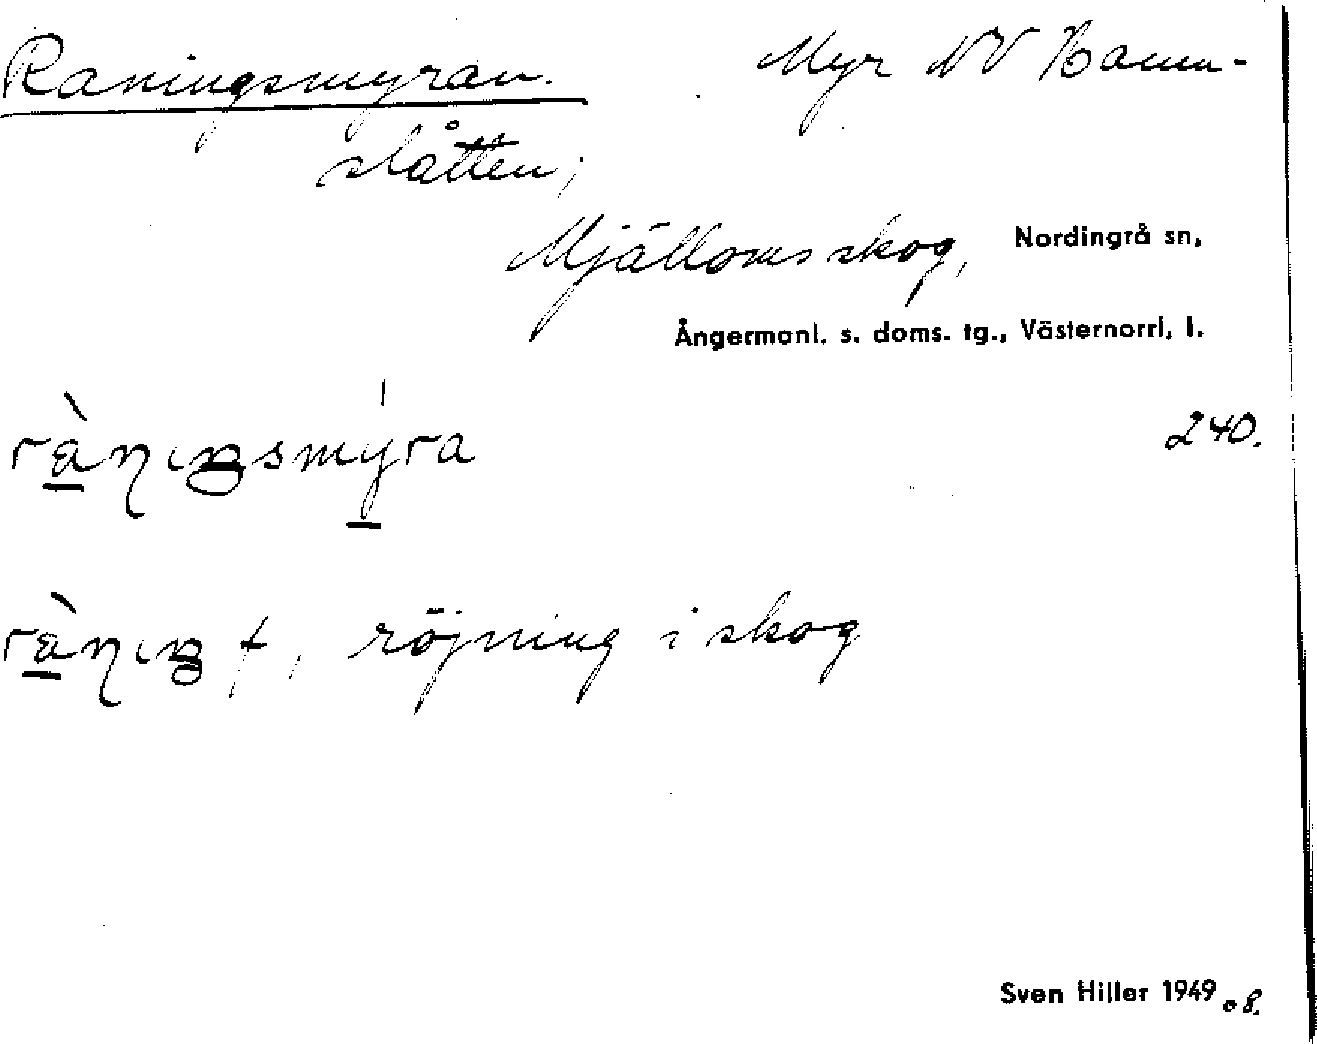 Raningsmyran. Myr NV Hamn-
slåtten,
Mjälloms skog, Nordingrå sn,
Ångermanl. s. doms. tg., Västernorrl. l.
240.
f, röjning i skog
Sven Hiller 1949 o 8.